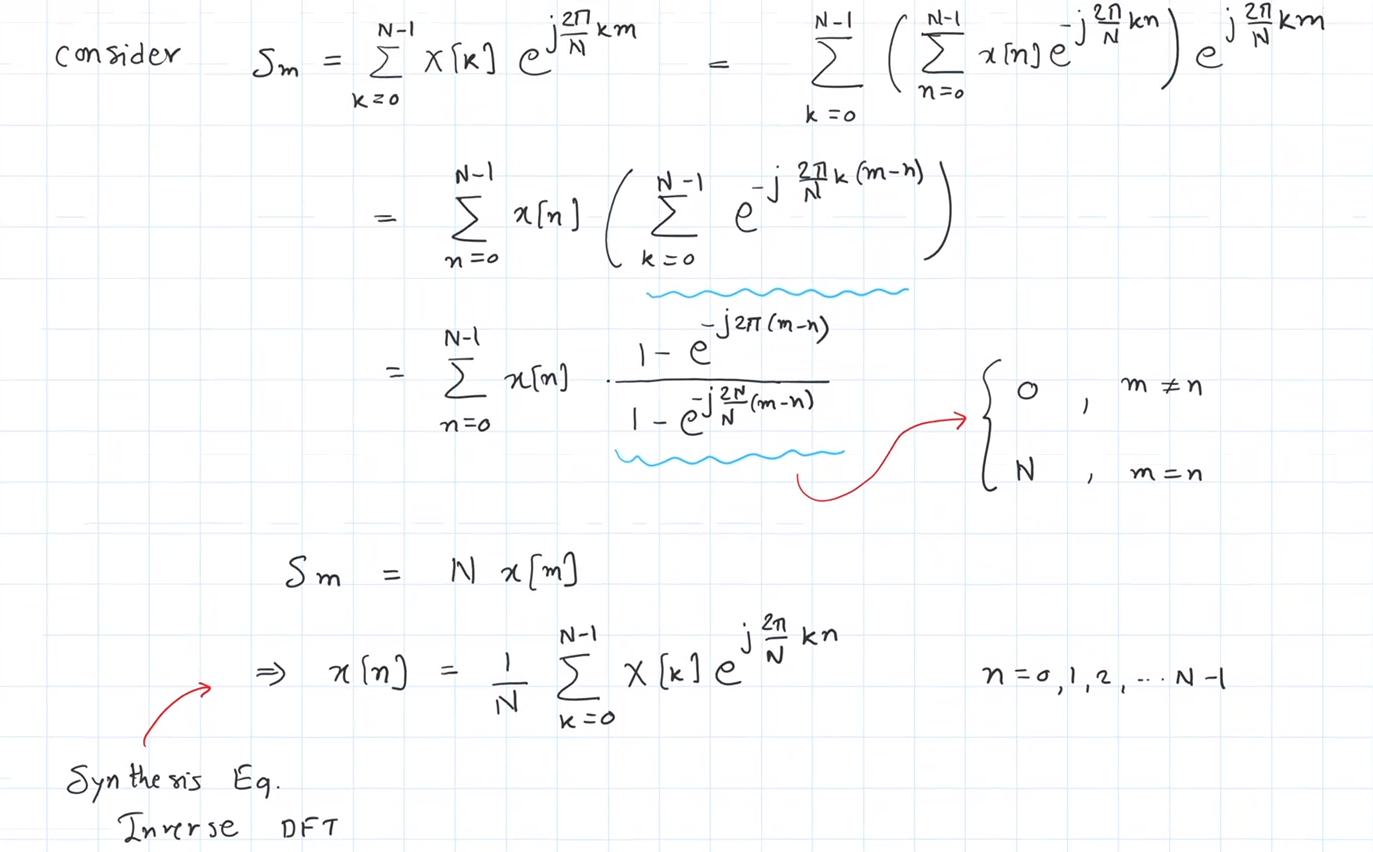 consider S_m = \sum_{k=0}^{N-1} X[k] e^{j\frac{2\pi}{N}km} = \sum_{k=0}^{N-1} ( \sum_{n=0}^{N-1} x[n] e^{-j\frac{2\pi}{N}kn} ) e^{j\frac{2\pi}{N}km}
= \sum_{n=0}^{N-1} x[n] ( \sum_{k=0}^{N-1} e^{-j\frac{2\pi}{N}k(m-n)} )
= \sum_{n=0}^{N-1} x[n] . \frac{1 - e^{-j2\pi(m-n)}}{1 - e^{-j\frac{2N}{N}(m-n)}} { 0 , m ≠ n
N , m = n
S_m = N x[m]
⇒ x[n] = \frac{1}{N} \sum_{k=0}^{N-1} X[k] e^{j\frac{2\pi}{N}kn} n = 0, 1, 2, ... N-1
Synthesis Eq.
Inverse DFT